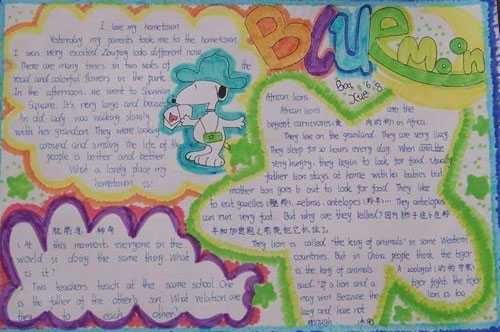 Blue Moon
I love my hometown
Yesterday my parents took me to the hometown.
I was very excited. Zouping looks different now.
There are many trees in two sides of the
road and colorful flowers in the park.
In the afternoon, we went to Shunnian
Square. It's very large and
An old lady was walking slowly
with her grandson. They were looking
around and smiling, the life of the
people is better and better.
What a lovely place my
hometown is!
脑筋急转弯
1. At this moment, everyone in the
world is doing the same thing. What
is it?
2. Two teachers teach at the same school. One
is the father of the other's son. What relation are
they to each other
African lions
African lions are the
biggest carnivores (食肉动物) in Africa.
They live on the grassland. They are very lazy.
They sleep for 20 hours every day. When are
very hungry, they begin to look for food. Usually
father lion stays at home with his babies but
mother lion goes out to look for food. They like
to eat gazelles zebras, antelopes And antelopes
can run very fast. But why are they killed?
They lion is called "the king of animals" in some Western
countries. But in China people think the tiger
is the king of animals. A zoologist
said: "If a lion and a tiger fight, the tiger
may win. Because the lion is too
lazy and have not
enough